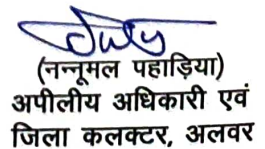 (नन्नूमल पहाड़िया)
अपीलीय अधिकारी एवं
जिला कलक्टर, अलवर